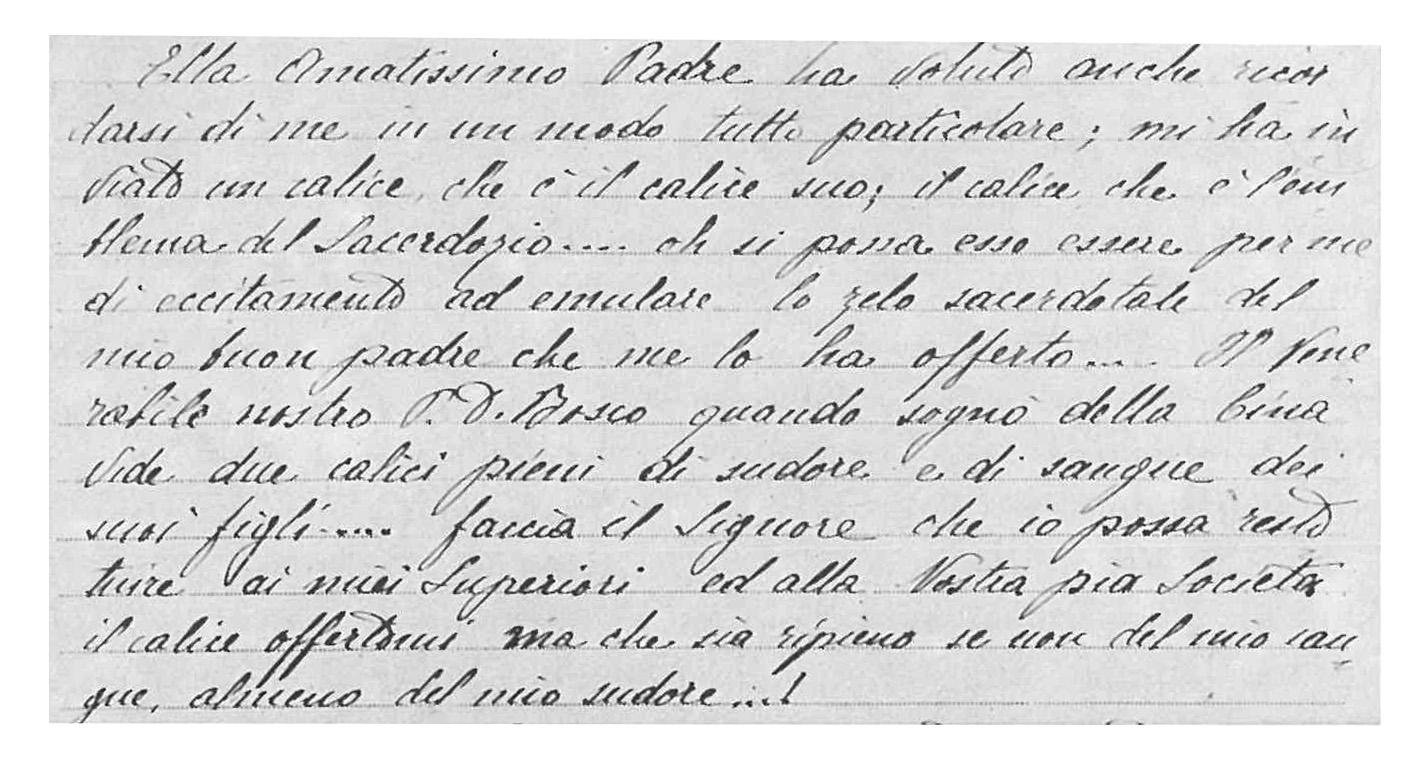 Ella Amatissimo Padre ha voluto anche ricor
darsi di me in un modo tutto particolare; mi ha in
viato un calice, che è il calice suo; il calice che è l'em
blema del Sacerdozio.... oh si possa esso essere per me
di eccitamento ad emulare lo zelo sacerdotale del
mio buon padre che me lo ha offerto.... Il Vene
rabile nostro P. D. Bosco quando sognò della Cina
vide due calici pieni di sudore e di sangue dei
suoi figli.... faccia il Signore che io possa resti
tuire ai miei Superiori ed alla Nostra pia Società
il calice offertomi ma che sia ripieno se non del mio san
gue, almeno del mio sudore...!